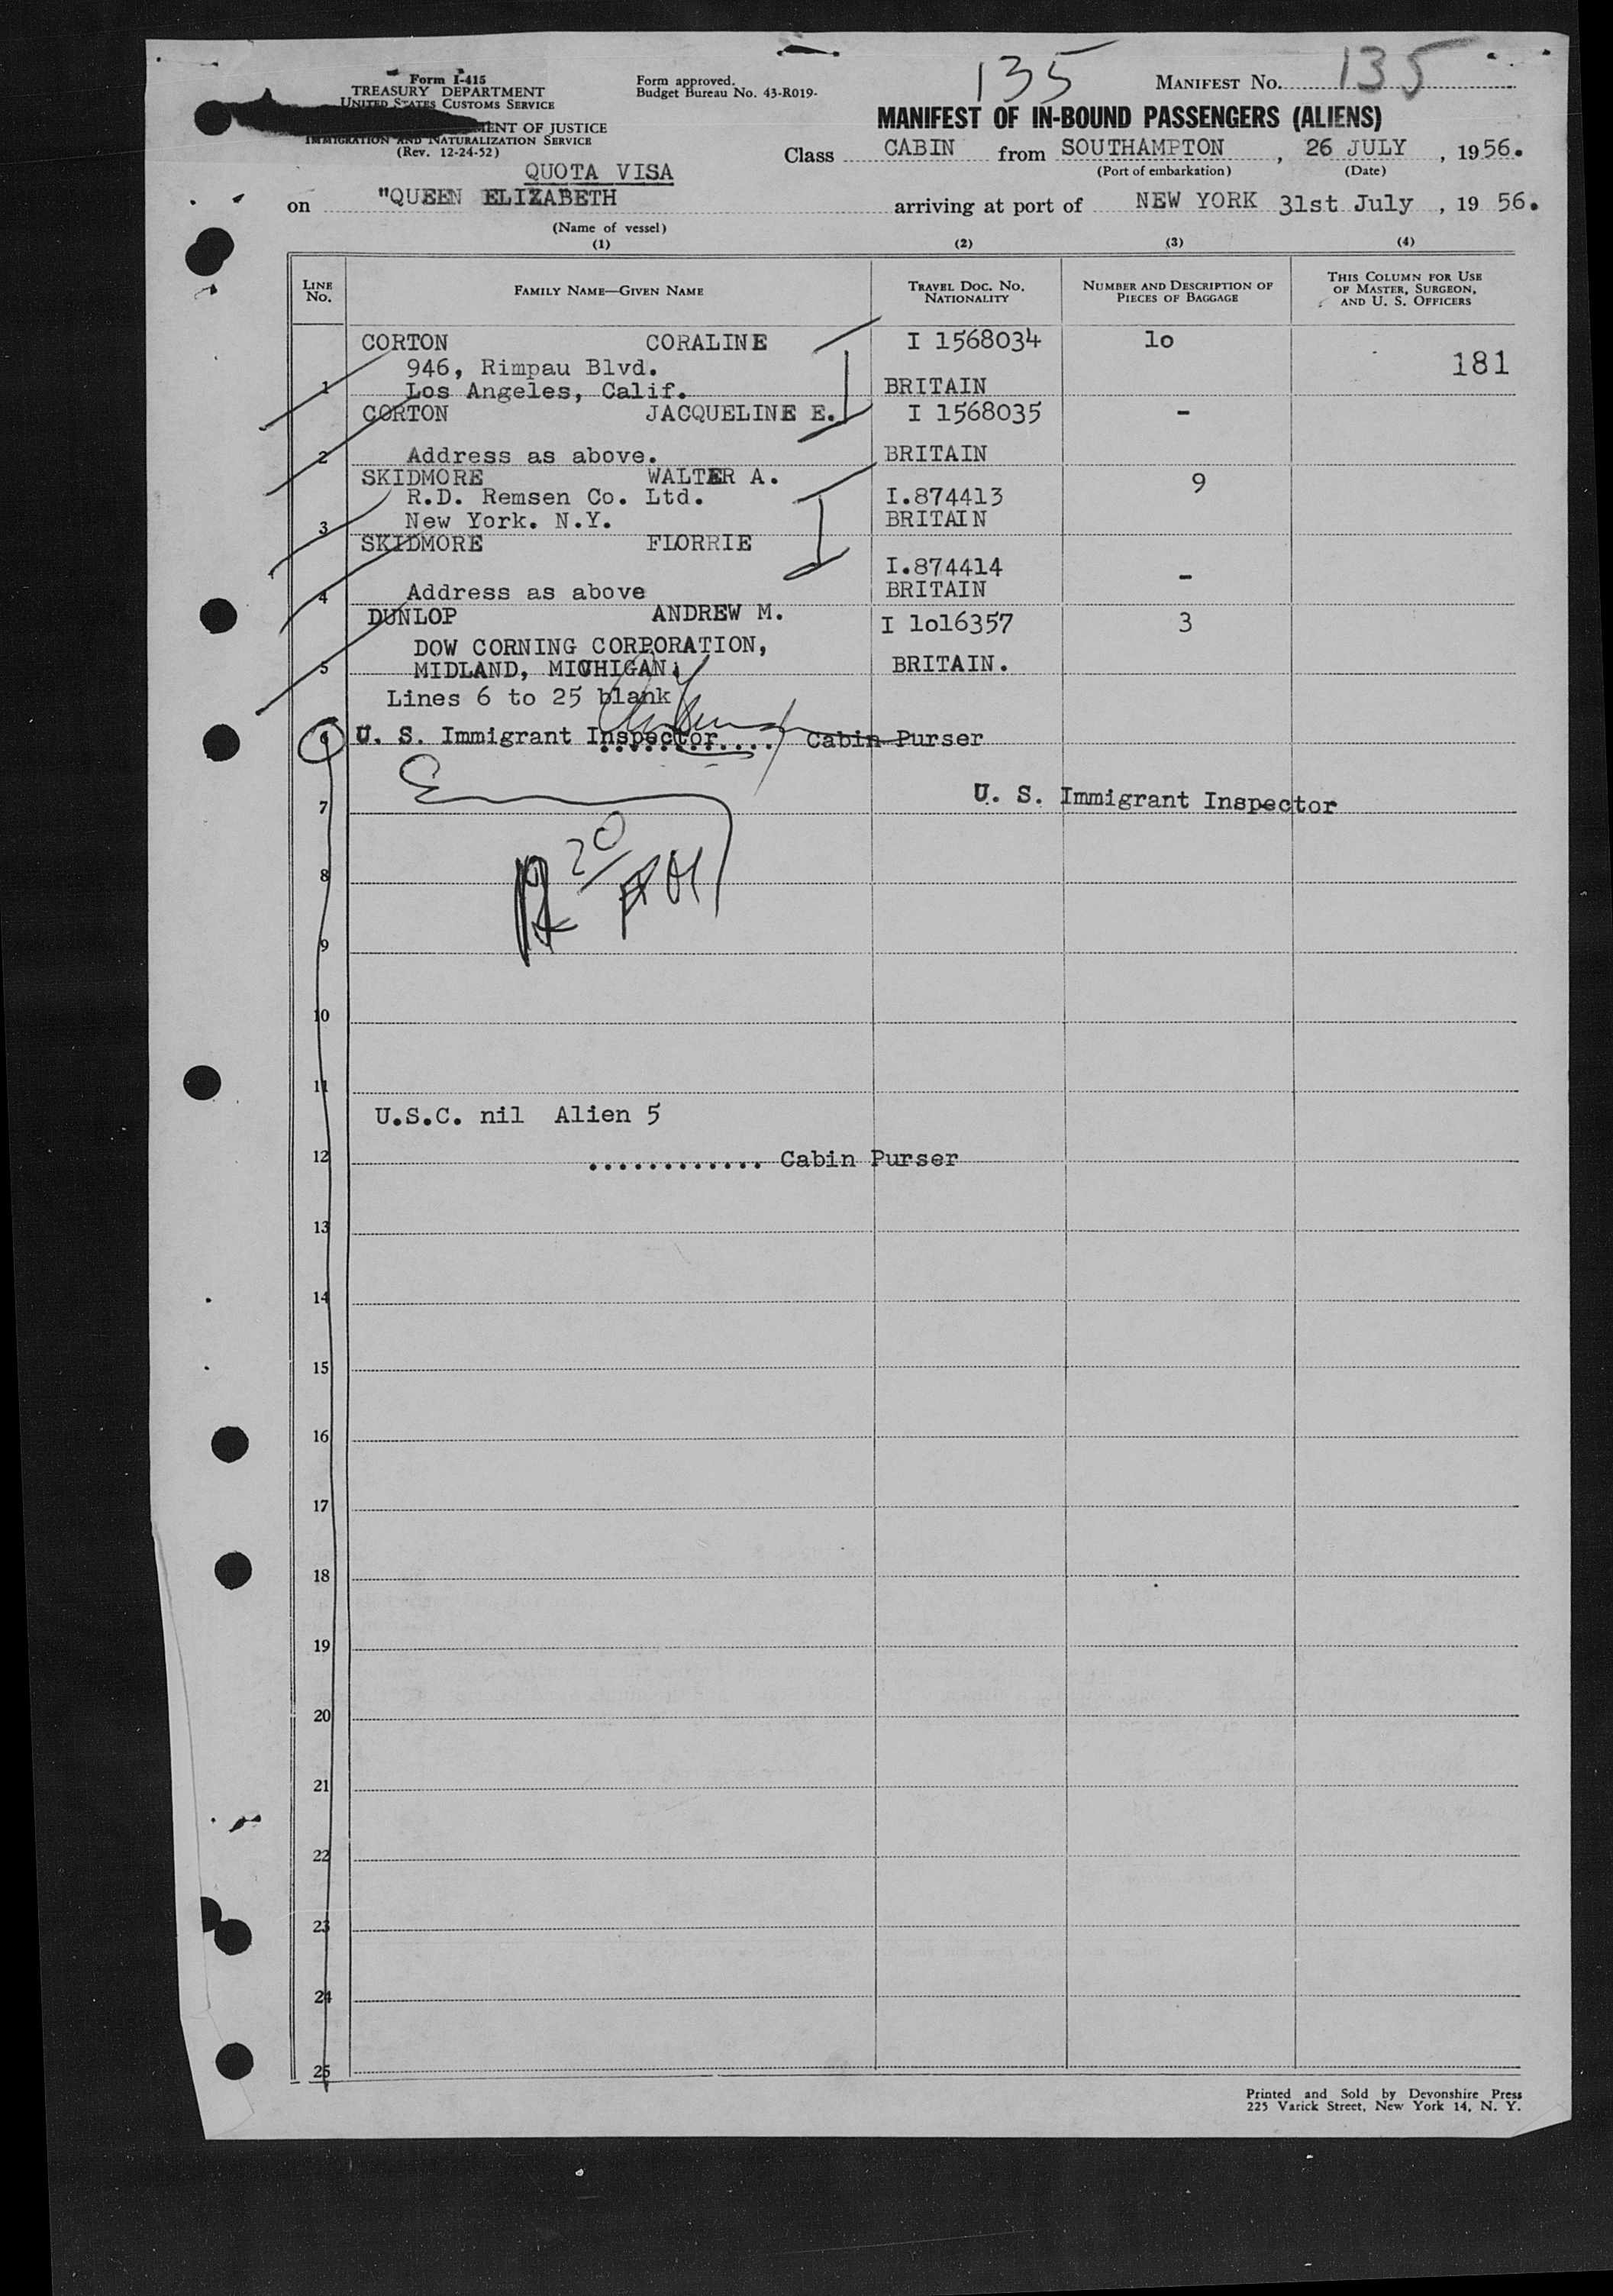 135
MANIFEST No. 135
Form I-415
TREASURY DEPARTMENT
UNITED STATES CUSTOMS SERVICE
MENT OF JUSTICE
IMMIGRATION AND NATURALIZATION SERVICE
(Rev. 12-24-52)
Form approved.
Budget Bureau No. 43-R019.
MANIFEST OF IN-BOUND PASSENGERS (ALIENS)
Class CABIN from SOUTHAMPTON, 26 JULY, 1956.
(Port of embarkation) (Date)
QUOTA VISA
on "QUEEN ELIZABETH arriving at port of NEW YORK 31st July, 19 56.
(Name of vessel)
(1) (2) (3) (4)
LINE No. FAMILY NAME—GIVEN NAME TRAVEL DOC. No. NATIONALITY NUMBER AND DESCRIPTION OF PIECES OF BAGGAGE THIS COLUMN FOR USE OF MASTER, SURGEON, AND U. S. OFFICERS
CORTON CORALINE I 1568034 lo
946, Rimpau Blvd. 181
1 Los Angeles, Calif. BRITAIN
CORTON JACQUELINE E. I 1568035 -
2 Address as above. BRITAIN
SKIDMORE WALTER A. 9
R.D. Remsen Co. Ltd. I.874413
3 New York. N.Y. BRITAIN
SKIDMORE FLORRIE
I.874414 -
4 Address as above BRITAIN
DUNLOP ANDREW M. I lol6357 3
DOW CORNING CORPORATION,
5 MIDLAND, MICHIGAN. BRITAIN.
Lines 6 to 25 blank
6 U. S. Immigrant Inspector ............ Cabin Purser
7 U. S. Immigrant Inspector
20
8
9
10
11
U.S.C. nil Alien 5
12 ............ Cabin Purser
13
14
15
16
17
18
19
20
21
22
23
24
25
Printed and Sold by Devonshire Press
225 Varick Street, New York 14, N. Y.